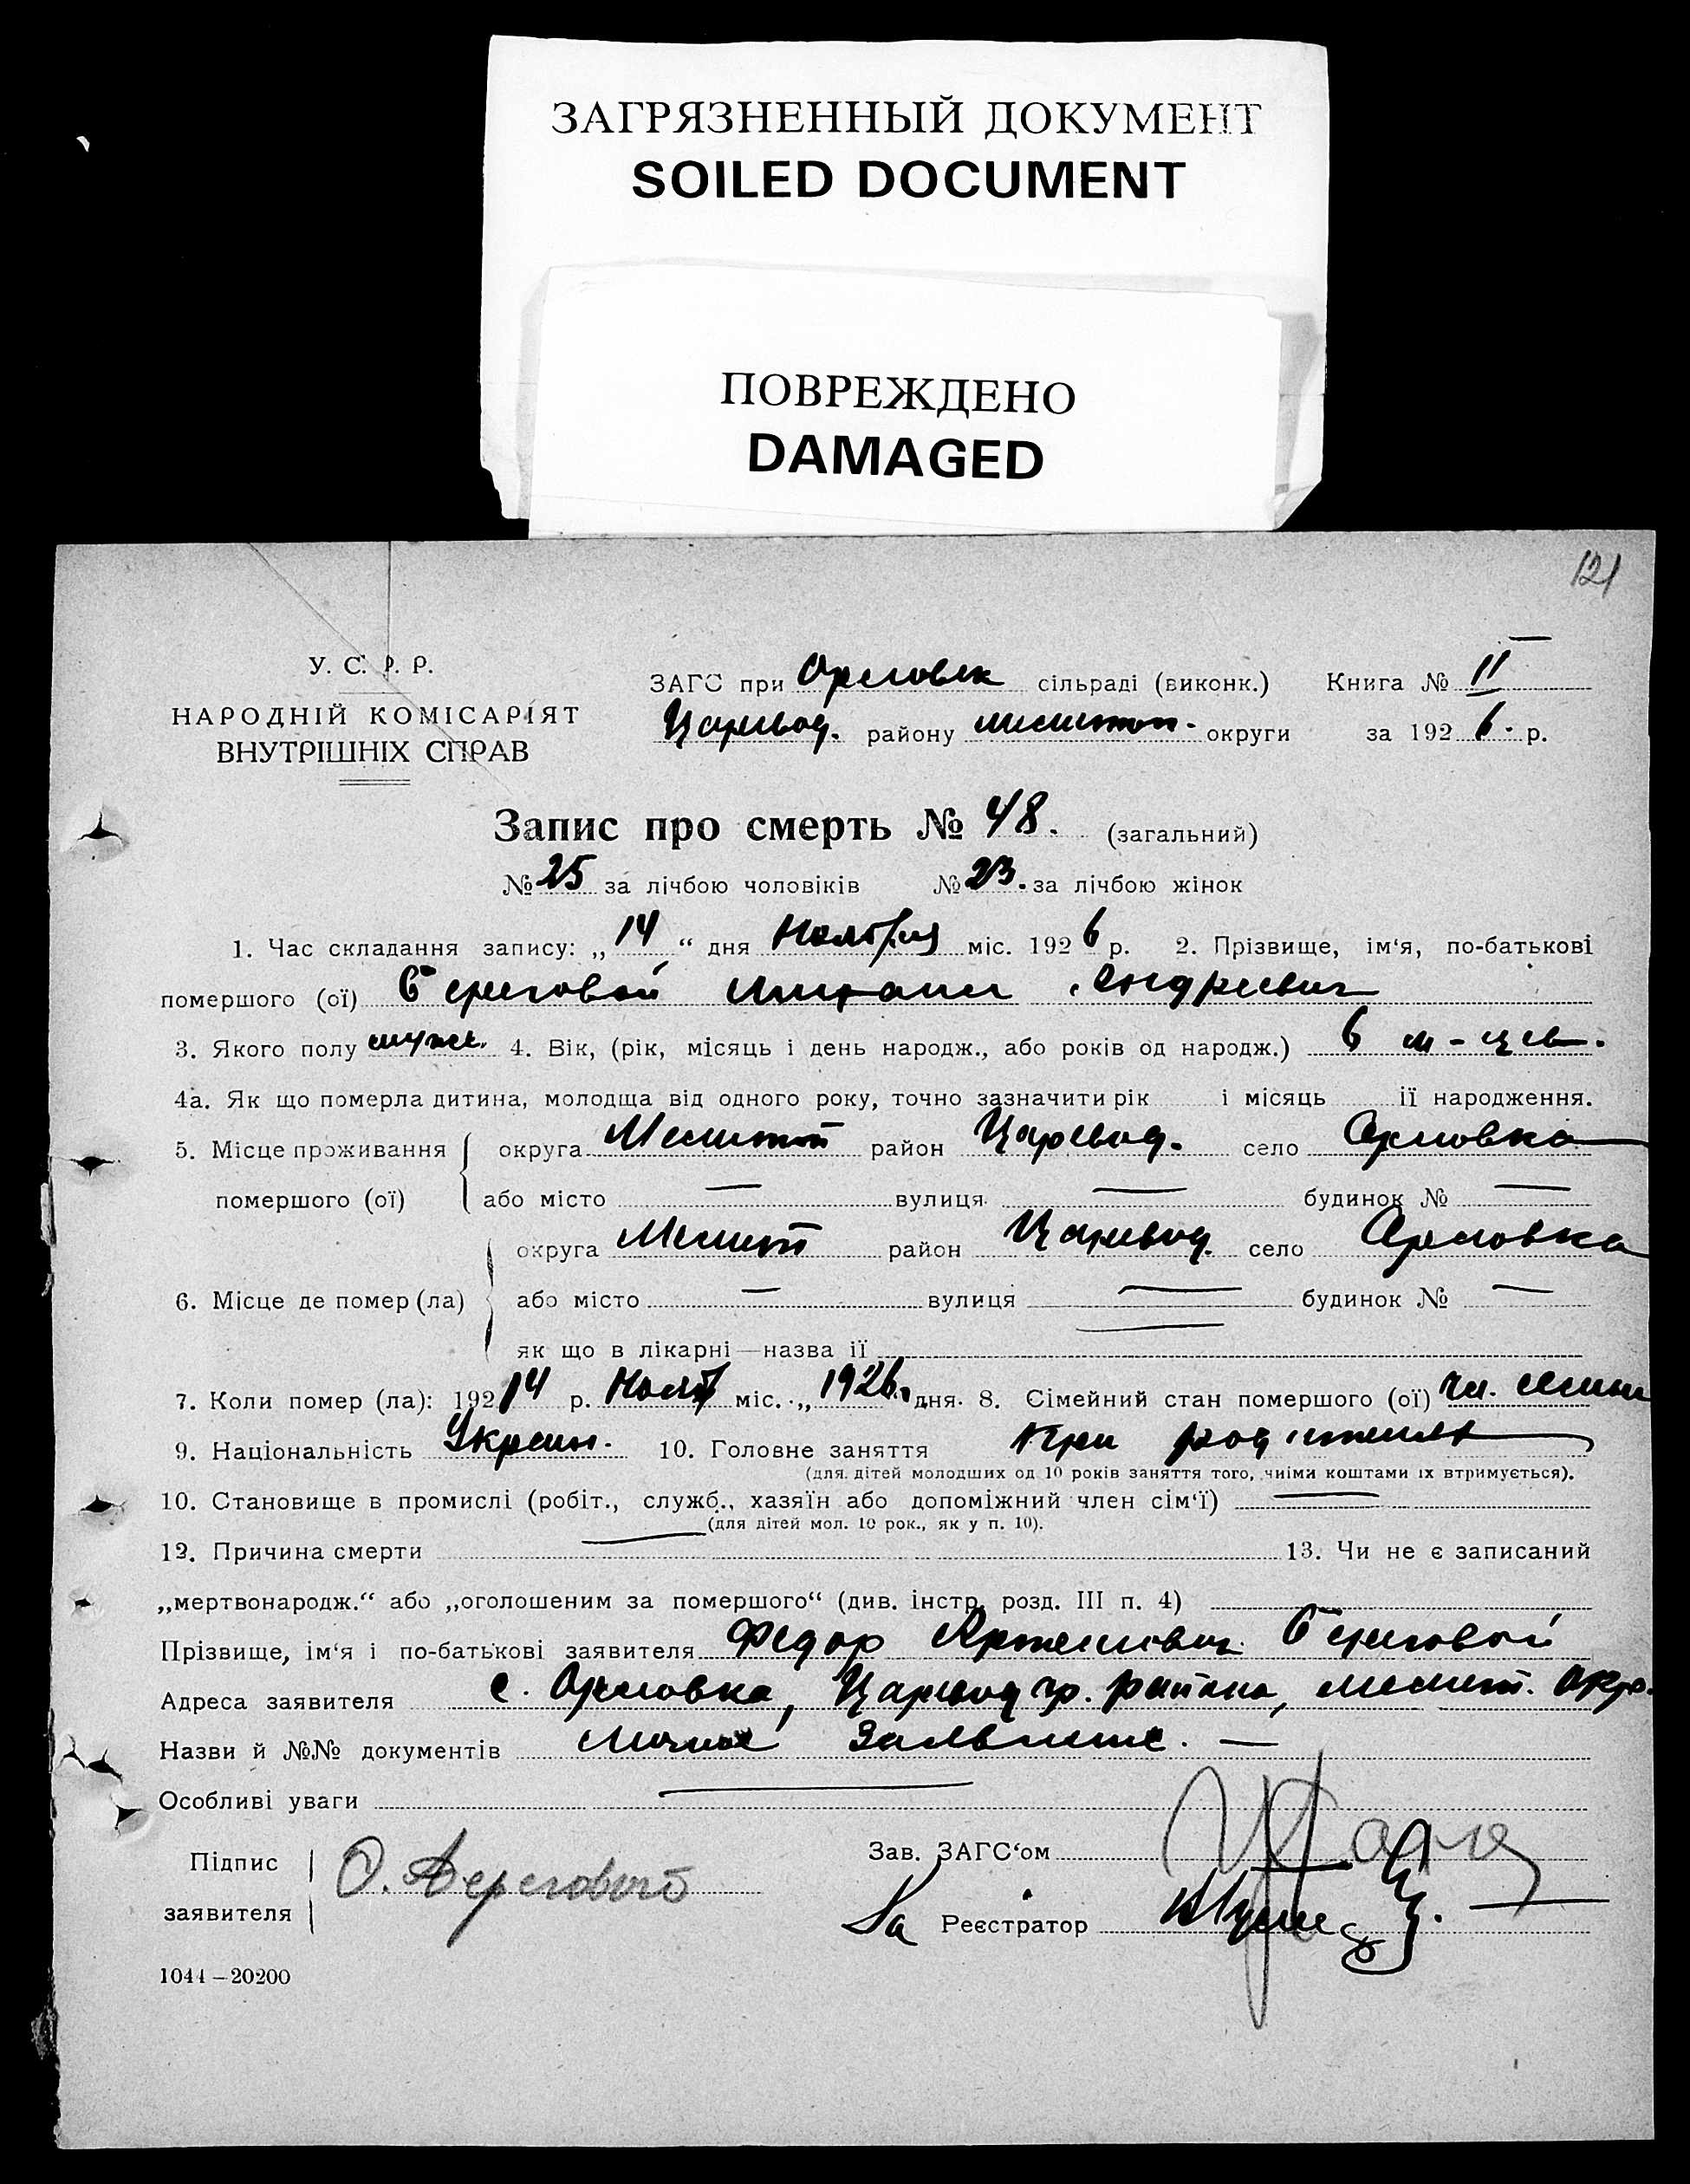 ЗАГРЯЗНЕННЫЙ ДОКУМЕНТ
SOILED DOCUMENT
ПОВРЕЖДЕНО
DAMAGED
121
У. С. Р. Р.
НАРОДНІЙ КОМІСАРІЯТ
ВНУТРІШНІХ СПРАВ
ЗАГС при Орловск сільраді (виконк.) Книга № II
Царевод. району мелитоп. округи за 1926. р.
Запис про смерть № 48. (загальний)
№ 25 за лічбою чоловіків № 23. за лічбою жінок
1. Час складання запису: „14“ дня Ноября міс. 1926 р. 2. Прізвище, ім‘я, по-батькові
помершого (ої) Береговой Михаил Андреевич
3. Якого полу мужс. 4. Вік, (рік, місяць і день народж., або років од народж.) 6 м-цев.
4а. Як що померла дитина, молодща від одного року, точно зазначити рік і місяць її народження.
5. Місце проживання округа Мелитоп район Царевод. село Орловка
помершого (ої) або місто — вулиця — будинок № —
округа Мелит район Царевод. село Орловка
6. Місце де помер (ла) або місто — вулиця — будинок № —
як що в лікарні—назва її —
7. Коли помер (ла): 192 14 р. Нояб міс. „1926. дня. 8. Сімейний стан помершого (ої) чл. семьи
9. Національність Украин. 10. Головне заняття При
(для дітей молодших од 10 років заняття того, чиїми коштами їх втримується).
10. Становище в промислі (робіт., служб., хазяїн або допоміжний член сім‘ї) —
(для дітей мол. 10 рок., як у п. 10).
12. Причина смерти — 13. Чи не є записаний
„мертвонародж.“ або „оголошеним за помершого“ (див. інстр. розд. III п. 4)
Прізвище, ім‘я і по-батькові заявителя Федор Артемович Береговой
Адреса заявителя с. Орловка, Царевод гр. района, мелит. окр.
Назви й №№ документів Личное Заявление. —
Особливі уваги —
Підпис
заявителя Ф. Береговой
Зав. ЗАГС‘ом
За Реєстратор
1044—20200